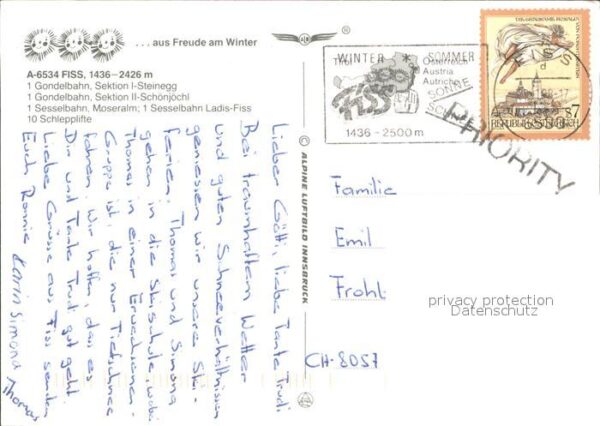 ... aus Freude am Winter
A-6534 FISS, 1436-2426 m
1 Gondelbahn, Sektion I-Steinegg
1 Gondelbahn, Sektion II-Schönjöchl
1 Sesselbahn, Moseralm; 1 Sesselbahn Ladis-Fiss
10 Schlepplifte
Lieber Götti, liebe Tante Trudi
Bei traumhaftem Wetter
und guten Schneeverhältnissen
geniessen wir unsere Ski-
ferien. Thomas und Simona
gehen in die Skischule, wobei
Thomas in einer Erwachsenen-
Gruppe ist, die nur Tiefschnee
fahren. Wir hoffen, dass es
Dir und Tante Trudi gut geht.
Liebe Grüsse aus Fiss senden
Euch Ronnie Karin Simona Thomas
© ALPINE LUFTBILD INNSBRUCK
WINTER SOMMER
Tirol
Österreich
Austria
Autriche
SONNE
FISS
1436-2500m
S7
REPUBLIK ÖSTERREICH
PRIORITY
Familie
Emil
Frohli
privacy protection
Datenschutz
CH-8057